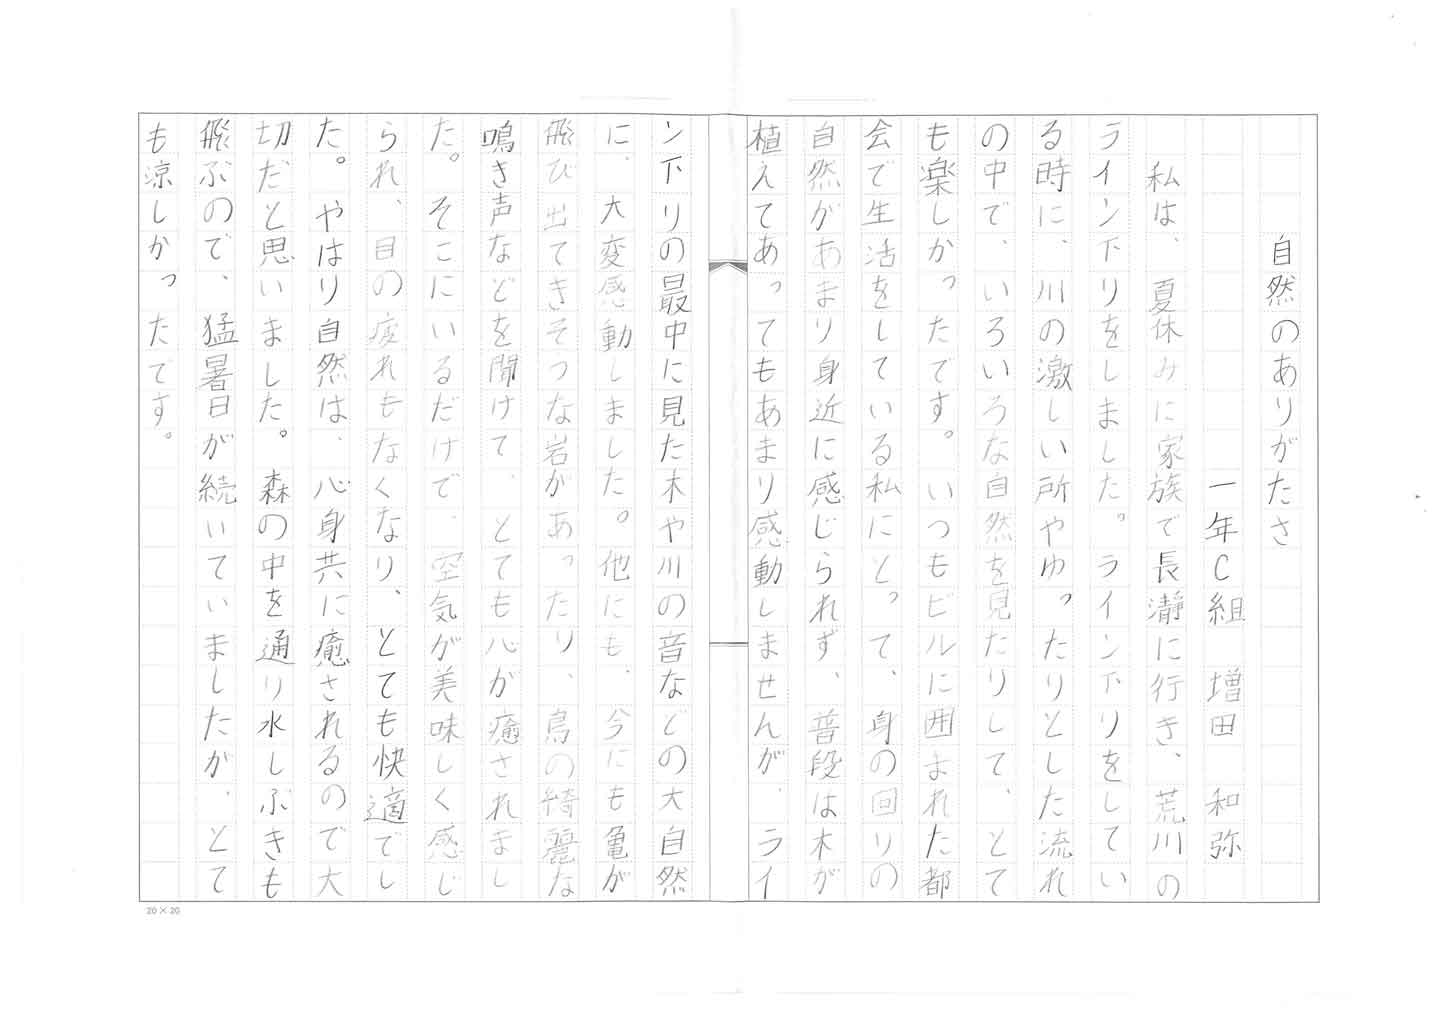 自然のありがたさ
一年C組 増田 和弥
私は、夏休みに家族で長瀞に行き、荒川の
ライン下りをしました。ライン下りをしてい
る時に、川の激しい所やゆったりとした流れ
の中で、いろいろな自然を見たりして、とて
も楽しかったです。いつもビルに囲まれた都
会で生活をしている私にとって、身の回りの
自然があまり身近に感じられず、普段は木が
植えてあってもあまり感動しませんが、ライ
ン下りの最中に見た木や川の音などの大自然
に、大変感動しました。他にも、今にも亀が
飛び出てきそうな岩があったり、鳥の綺麗な
鳴き声などを聞けて、とても心が癒されまし
た。そこにいるだけで、空気が美味しく感じ
られ、目の疲れもなくなり、とても快適でし
た。やはり自然は、心身共に癒されるので大
切だと思いました。森の中を通り水しぶきも
飛ぶので、猛暑日が続いていましたが、とて
も涼しかったです。
20×20